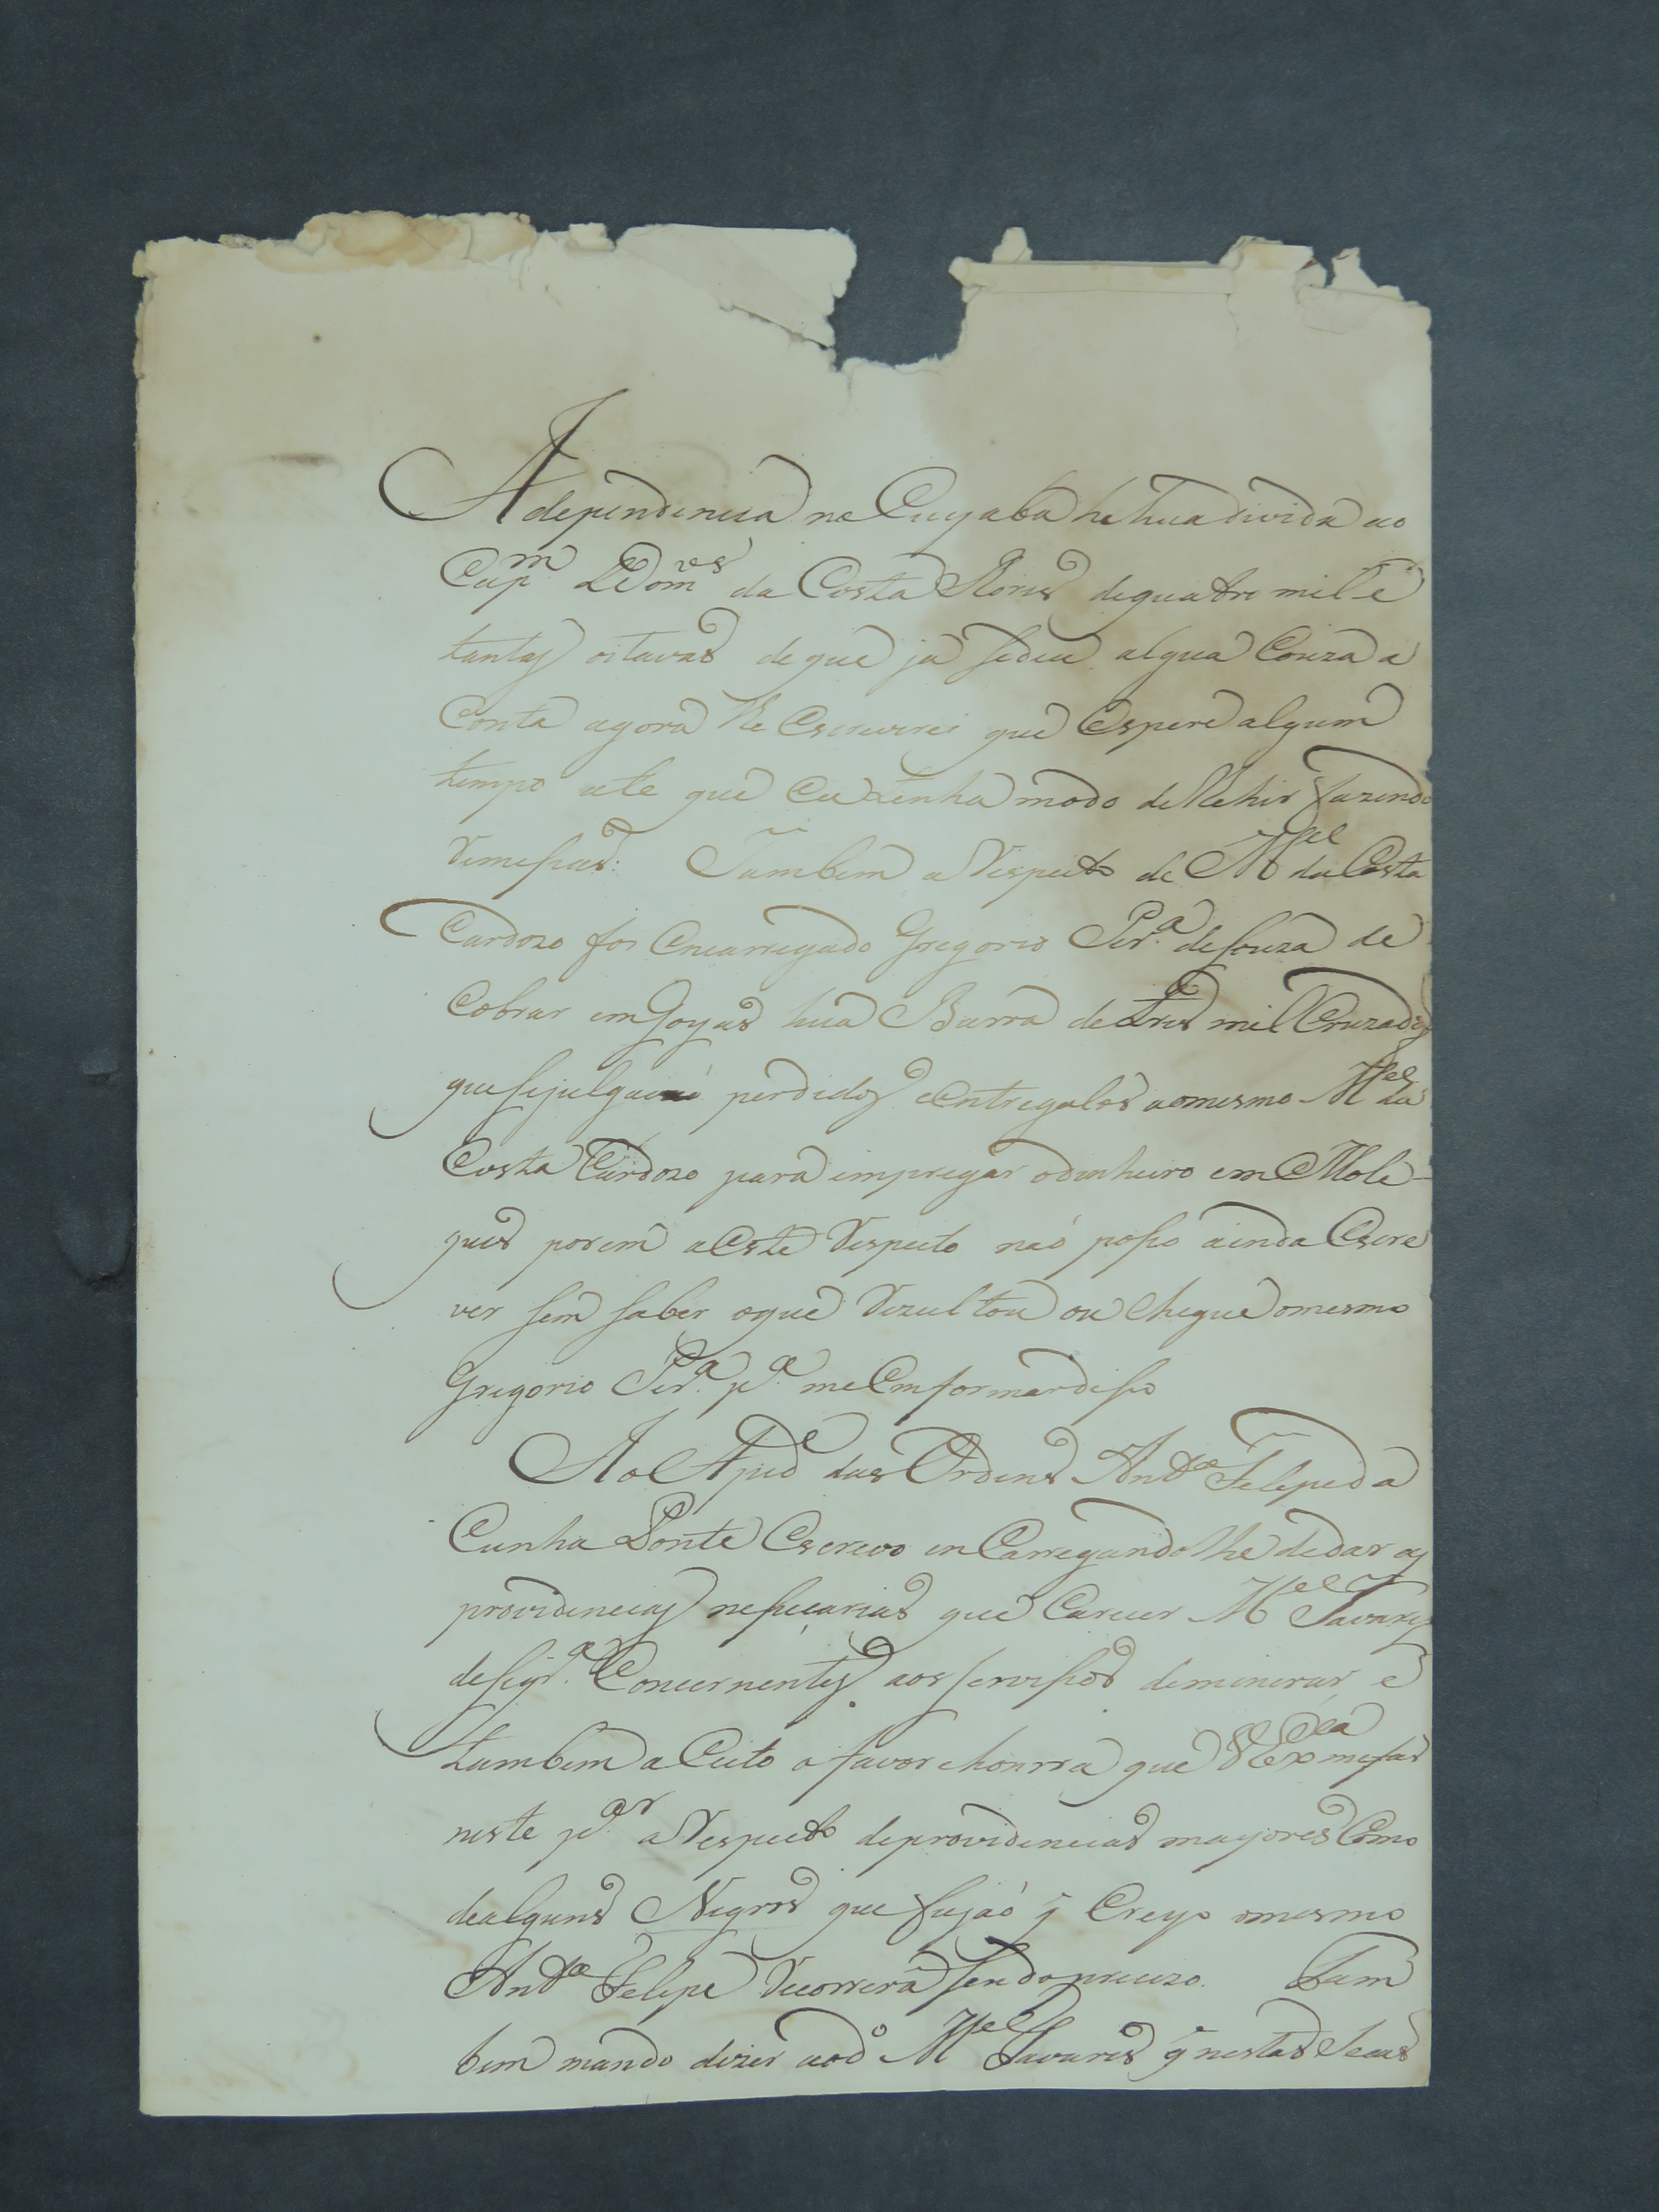 A dependencia no Cuyaba he hua divida ao
Capm. Doms da Costa de quatro mil e
tantas oitavas de que já se deu algua Couza a
Conta agora lhe Escreverei que Espere algum
tempo ate que Eu tenha modo de lhe hir fazendo
remessas: Tambem a Respeito de Mel da Costa
Cardozo foi Encarregado Gregorio Perª de souza de
Cobrar em Goyas hua Barra de tres mil Cruzados
que se julgavaó perdidos e Entregalos ao mesmo Mel da
Costa Cardozo para empregar o dinheiro em Mole-
ques porem a Este Respeito naó posso ainda Escre
ver sem saber o que Rezultou ou chegue o mesmo
Gregorio Perª pª me Emformar disso
Ao Ajude das Ordens Anto Felipe da
Cunha Ponte Escrevo en Carregandolhe de dar as
providencias nessecarias que Carecer Mel Tavares
de siqrª Concernentes aos servissos de minerar, e
tambem aCeito o favor e honrra que VExcia me fas
neste par a Respeito de providencias mayores Como
de alguns Negros que fujaó q̃ Creyo o mesmo
Anto Felipe Recorrerá sendo precizo. Tam
bem mando dizer ao do Mel Tavares q̃ nestas Secas